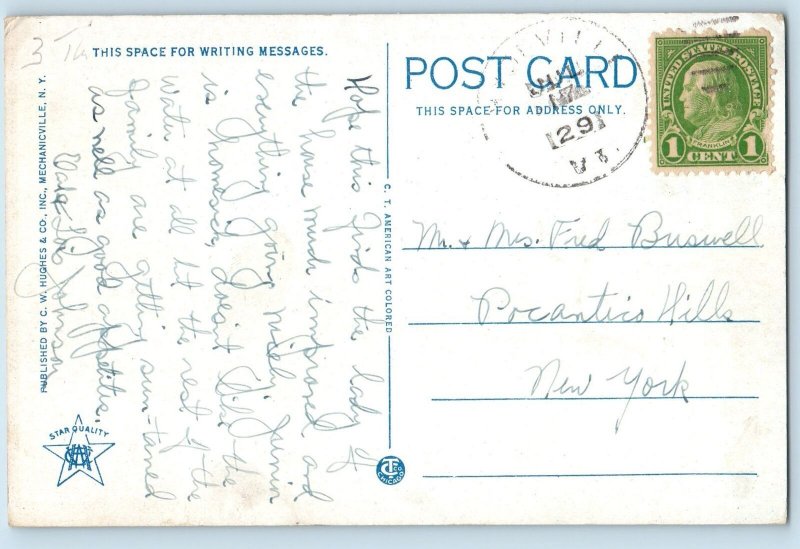 3
THIS SPACE FOR WRITING MESSAGES.
Hope this finds the lady of
the house much improved and
everything going nicely. Junior
is homesick, doesn't like the
water at all but the rest of the
family are getting sun-taned
as well as good appetites.
Johnson
PUBLISHED BY C. W. HUGHES & CO., INC., MECHANICVILLE, N. Y.
STAR QUALITY
C. T. AMERICAN ART COLORED
CHICAGO
POST CARD
THIS SPACE FOR ADDRESS ONLY.
VILLE
JUL
29
UNITED STATES POSTAGE
FRANKLIN
1 CENT 1
Mr. + Mrs. Fred Buswell
Pocantico Hills
New York